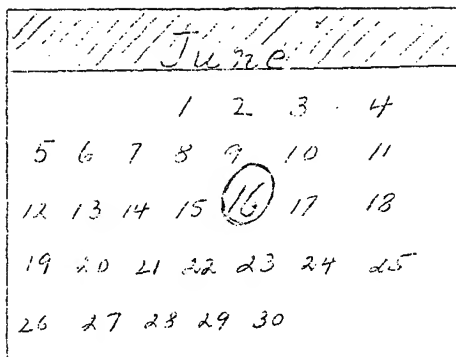 June
1 2 3 4
5 6 7 8 9 10 11
12 13 14 15 16 17 18
19 20 21 22 23 24 25
26 27 28 29 30